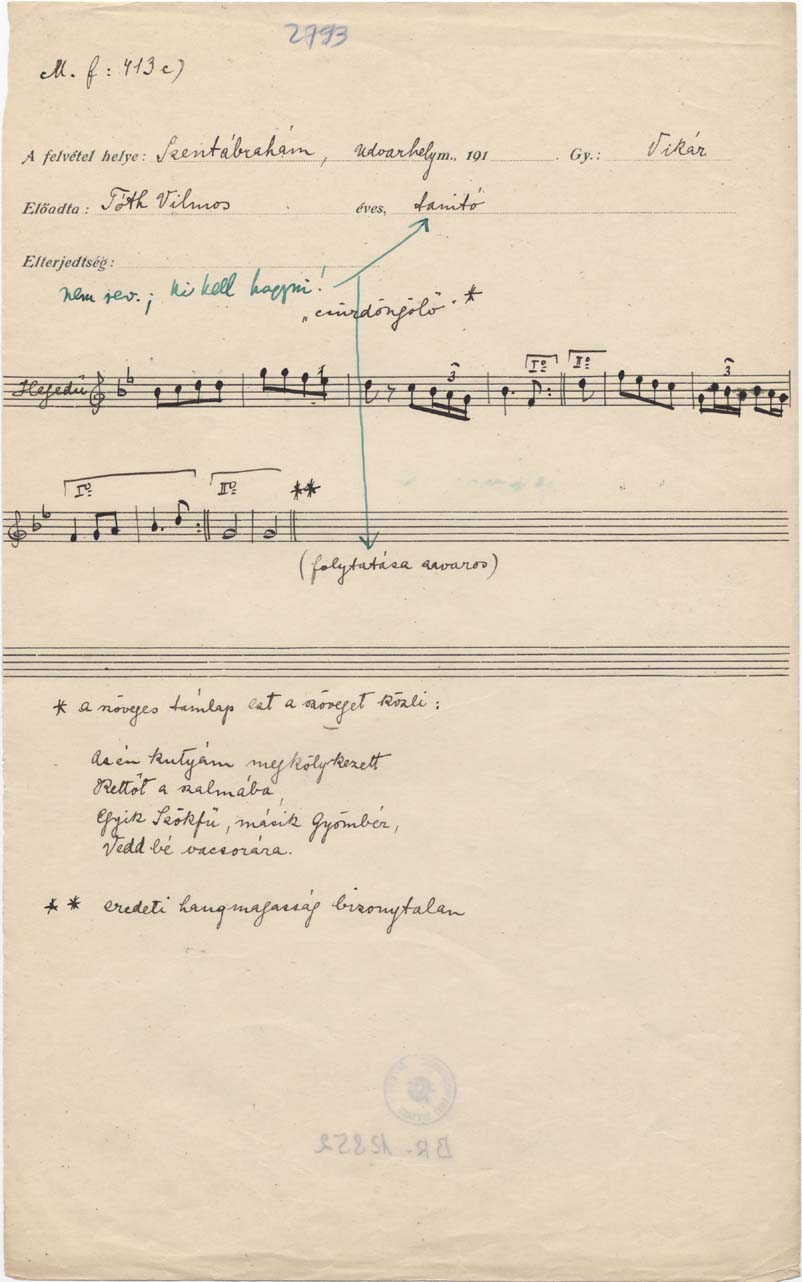 2793
M. f: 413c)
A felvétel helye: Szentábrahám, Udvarhelym., 191 . Gy.: Vikár
Előadta: Tóth Vilmos éves, tanító
Elterjedtség:
nem rev.; ki kell hagyni!
„csürdöngölő". *
Hegedű 3 Iº IIº 3
Iº IIº **
(folytatása zavaros)
* a szöveges támlap ezt a szöveget közli:
Az én kutyám megkölykezett
Kettőt a szalmába,
Egyik Szökfű, másik Gyömbér,
Vedd bé vacsorára.
** eredeti hangmagasság bizonytalan
BR-12852